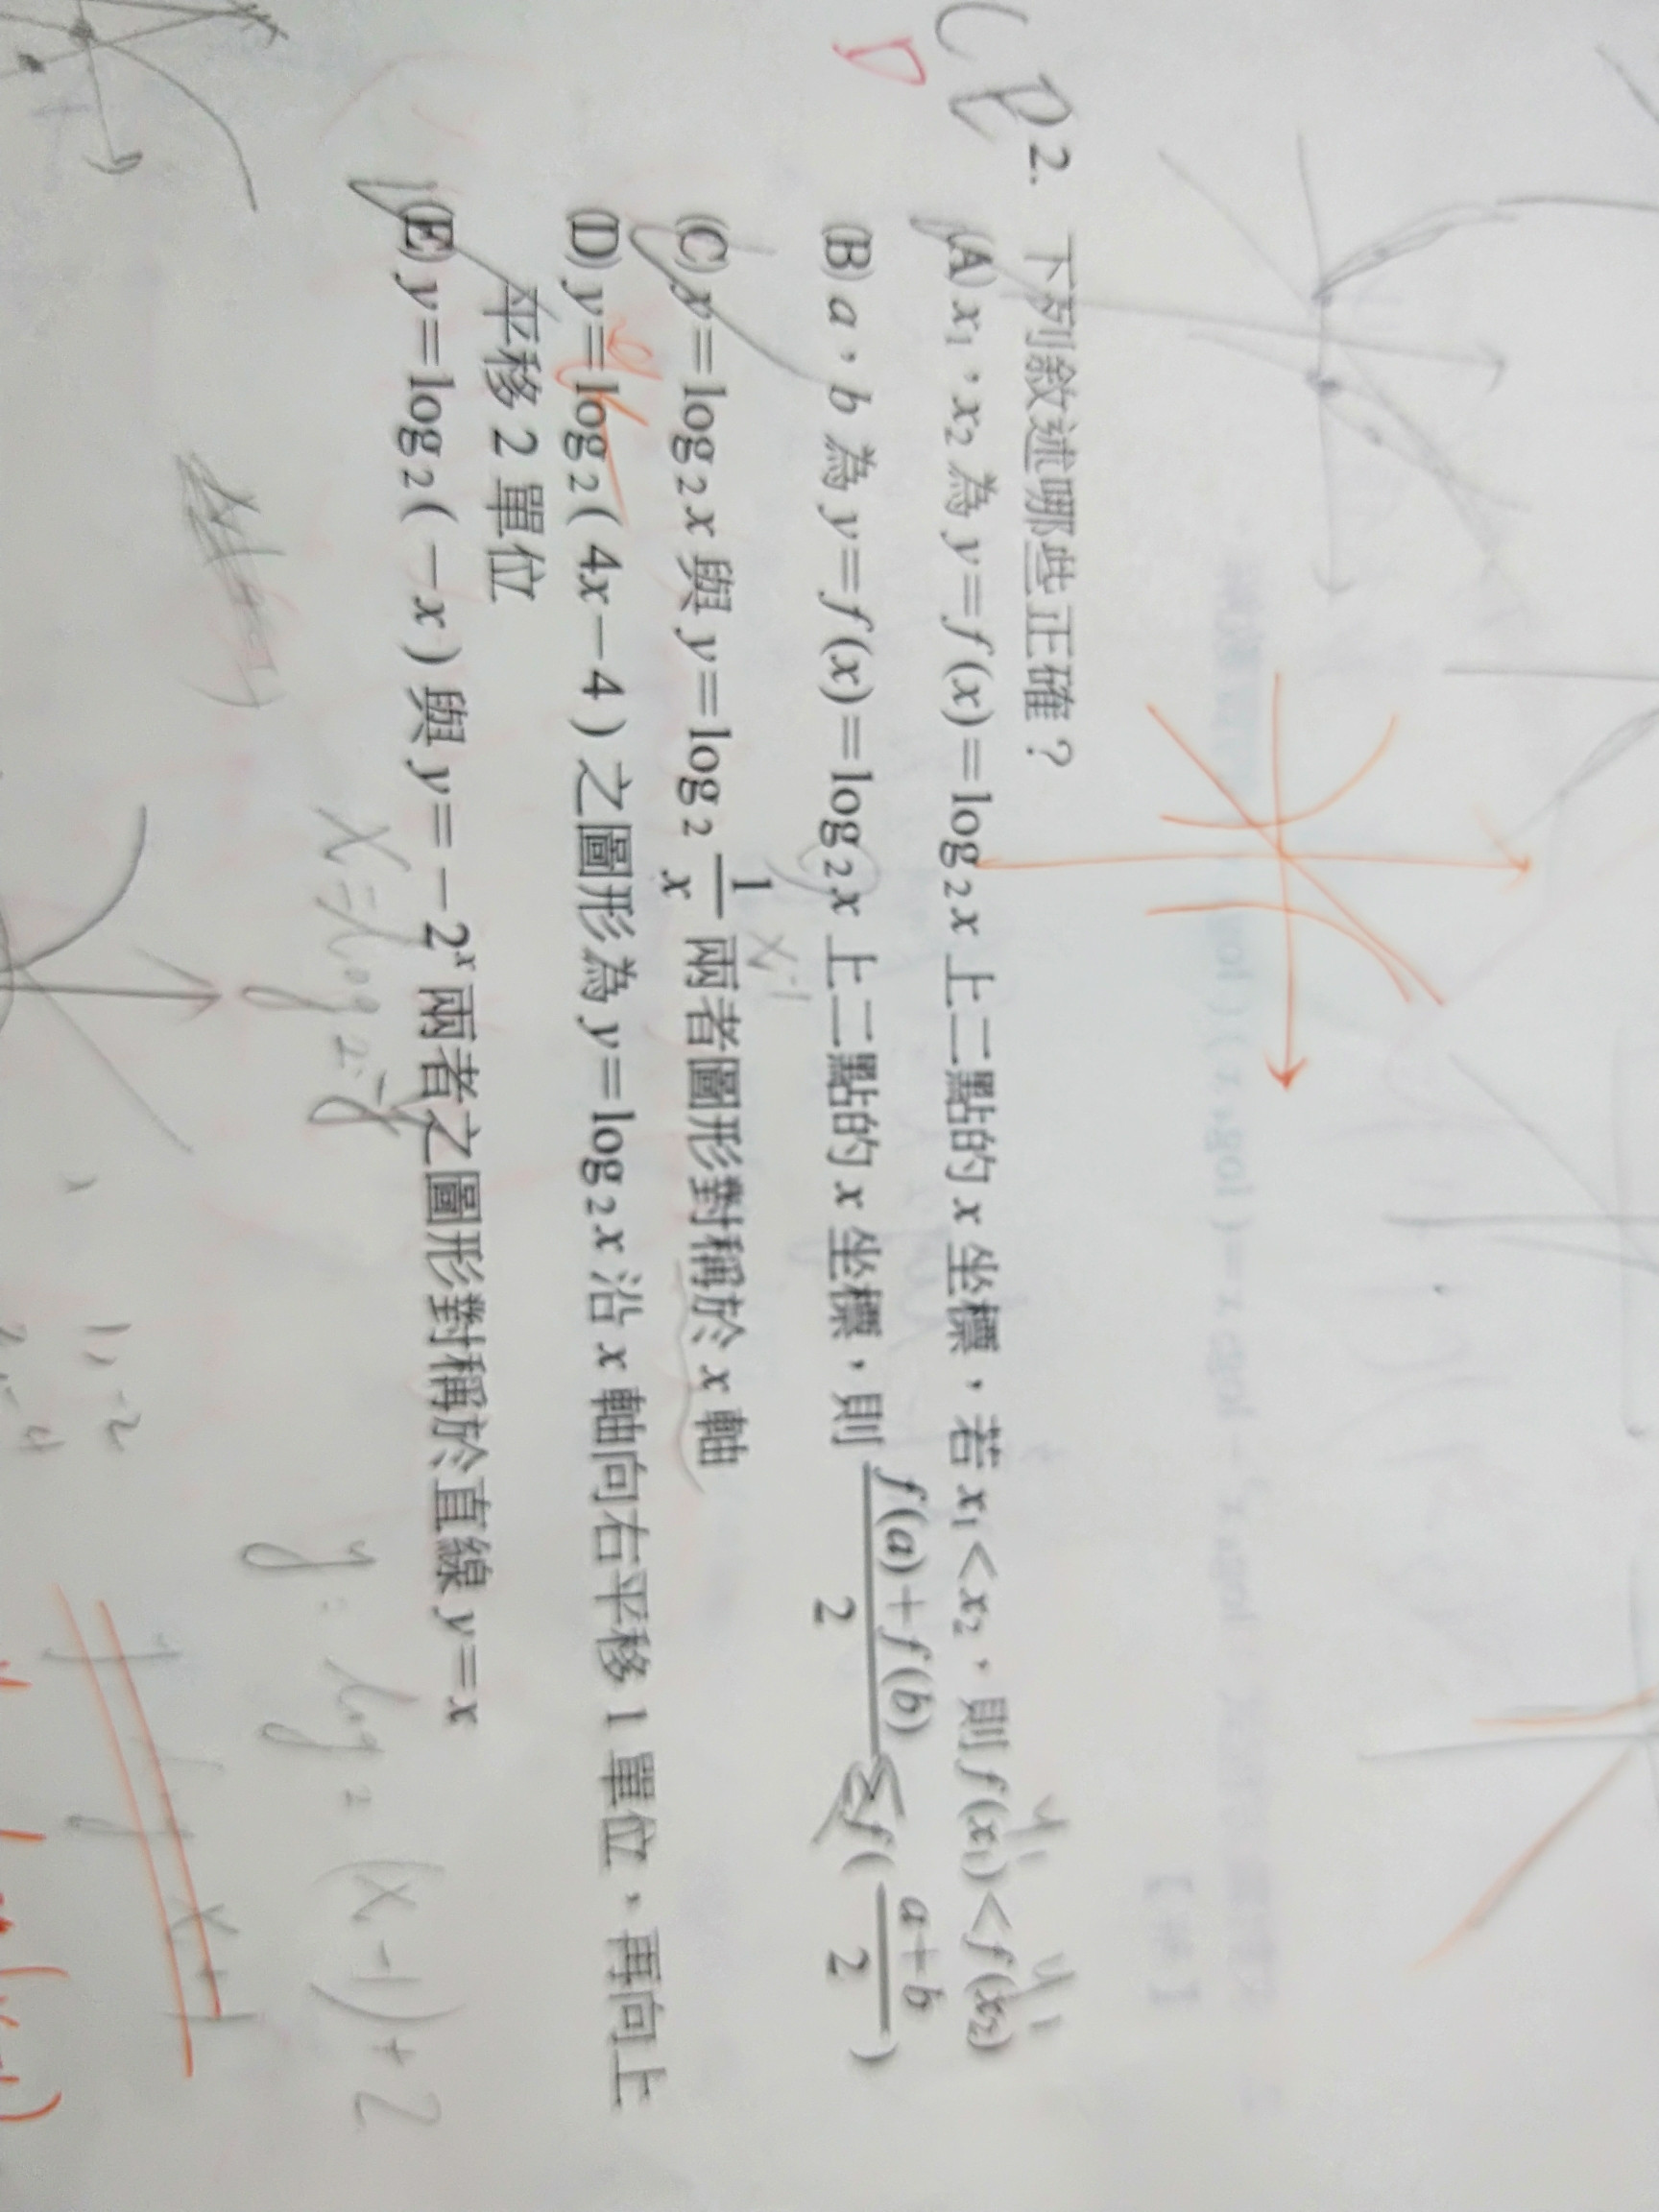 2. 下列敘述哪些正確?
(A) x₁,x₂ 為 y=f(x)=log₂x 上二點的 x 坐標,若 x₁<x₂,則 f(x₁)<f(x₂)
y₁ y₁
(B) a,b 為 y=f(x)=log₂x 上二點的 x 坐標,則 \frac{f(a)+f(b)}{2} ≤ f(\frac{a+b}{2})
x⁻¹
(C) y=log₂x 與 y=log₂\frac{1}{x} 兩者圖形對稱於 x 軸
(D) y=log₂(4x-4)之圖形為 y=log₂x 沿 x 軸向右平移 1 單位,再向上
平移 2 單位
(E) y=log₂(-x)與 y=-2ˣ 兩者之圖形對稱於直線 y=x
D
x=log₂-y
y = log₂(x-1)+2
1,-2